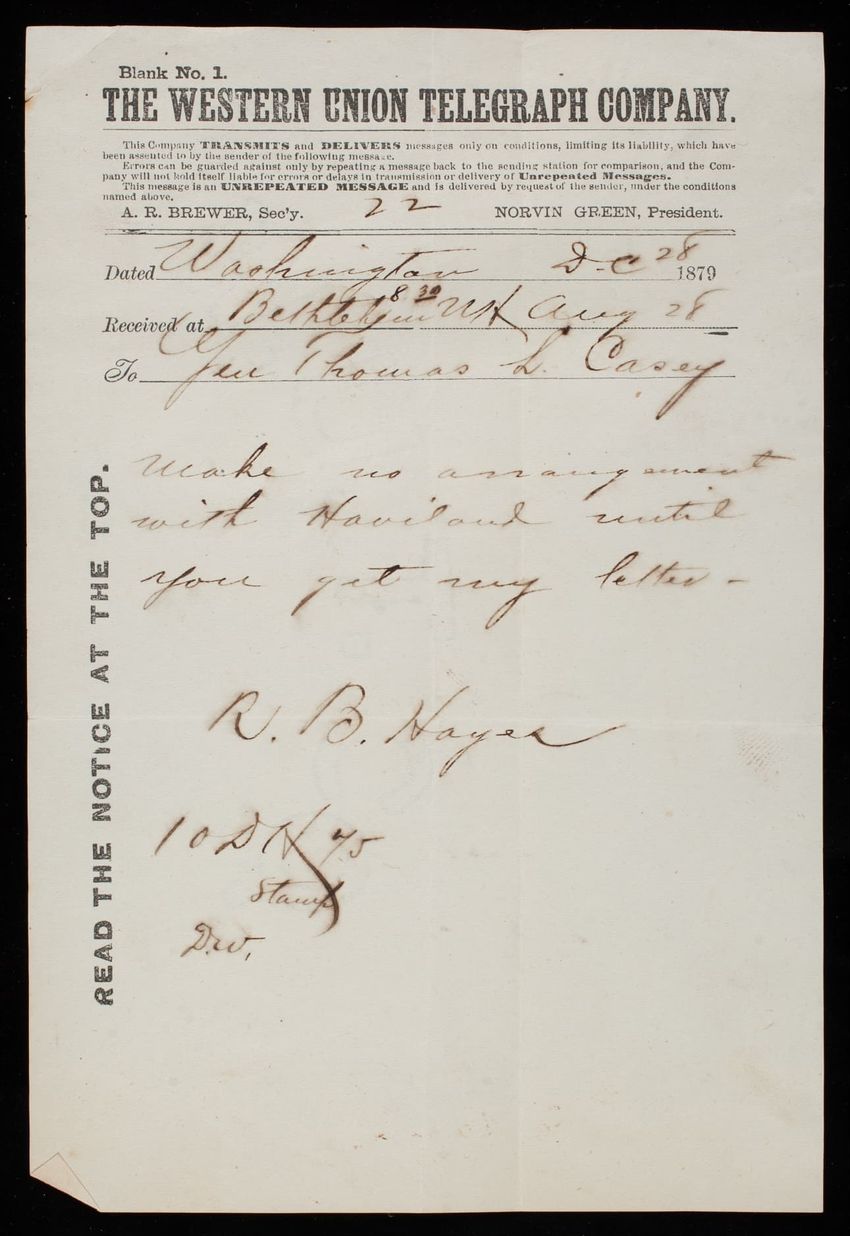 Blank No. 1.
THE WESTERN UNION TELEGRAPH COMPANY.
This Company TRANSMITS and DELIVERS messages only on conditions, limiting its liability, which have
been assented to by the sender of the following message.
Errors can be guarded against only by repeating a message back to the sending station for comparison, and the Com-
pany will not hold itself liable for errors or delays in transmission or delivery of Unrepeated Messages.
This message is an UNREPEATED MESSAGE and is delivered by request of the sender, under the conditions
named above.
A. R. BREWER, Sec'y. 22 NORVIN GREEN, President.
Dated Washington D.C 28 1879
8 30
Received at Bethlehem NH Aug 28
To Gen Thomas L. Casey
Make no arrangement
with Haviland until
you get my letter -
R. B. Hayes
10 D H 75
Stamp
READ THE NOTICE AT THE TOP.